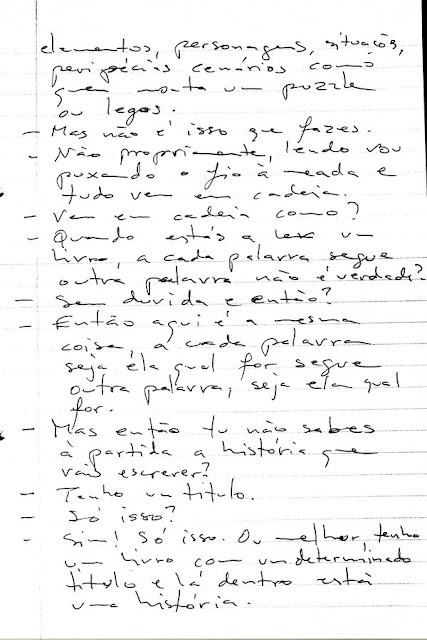 elementos, personagens, situações,
peripécias cenários como
quem monta um puzzle
ou legos.
– Mas não é isso que fazes.
– Não propriamente, lendo vou
puxando o fio à meada e
tudo vem em cadeia.
– Vem em cadeia como?
– Quando estás a ler um
livro, a cada palavra segue
outra palavra não é verdade?
– Sem dúvida e então?
– Então aqui é a mesma
coisa, a cada palavra
seja ela qual for segue
outra palavra, seja ela qual
for.
– Mas então tu não sabes
à partida a história que
vais escrever?
– Tenho um titulo.
– Só isso?
– Sim! Só isso. Ou melhor, tenho
um livro com um determinado
titulo e lá dentro está
uma história.